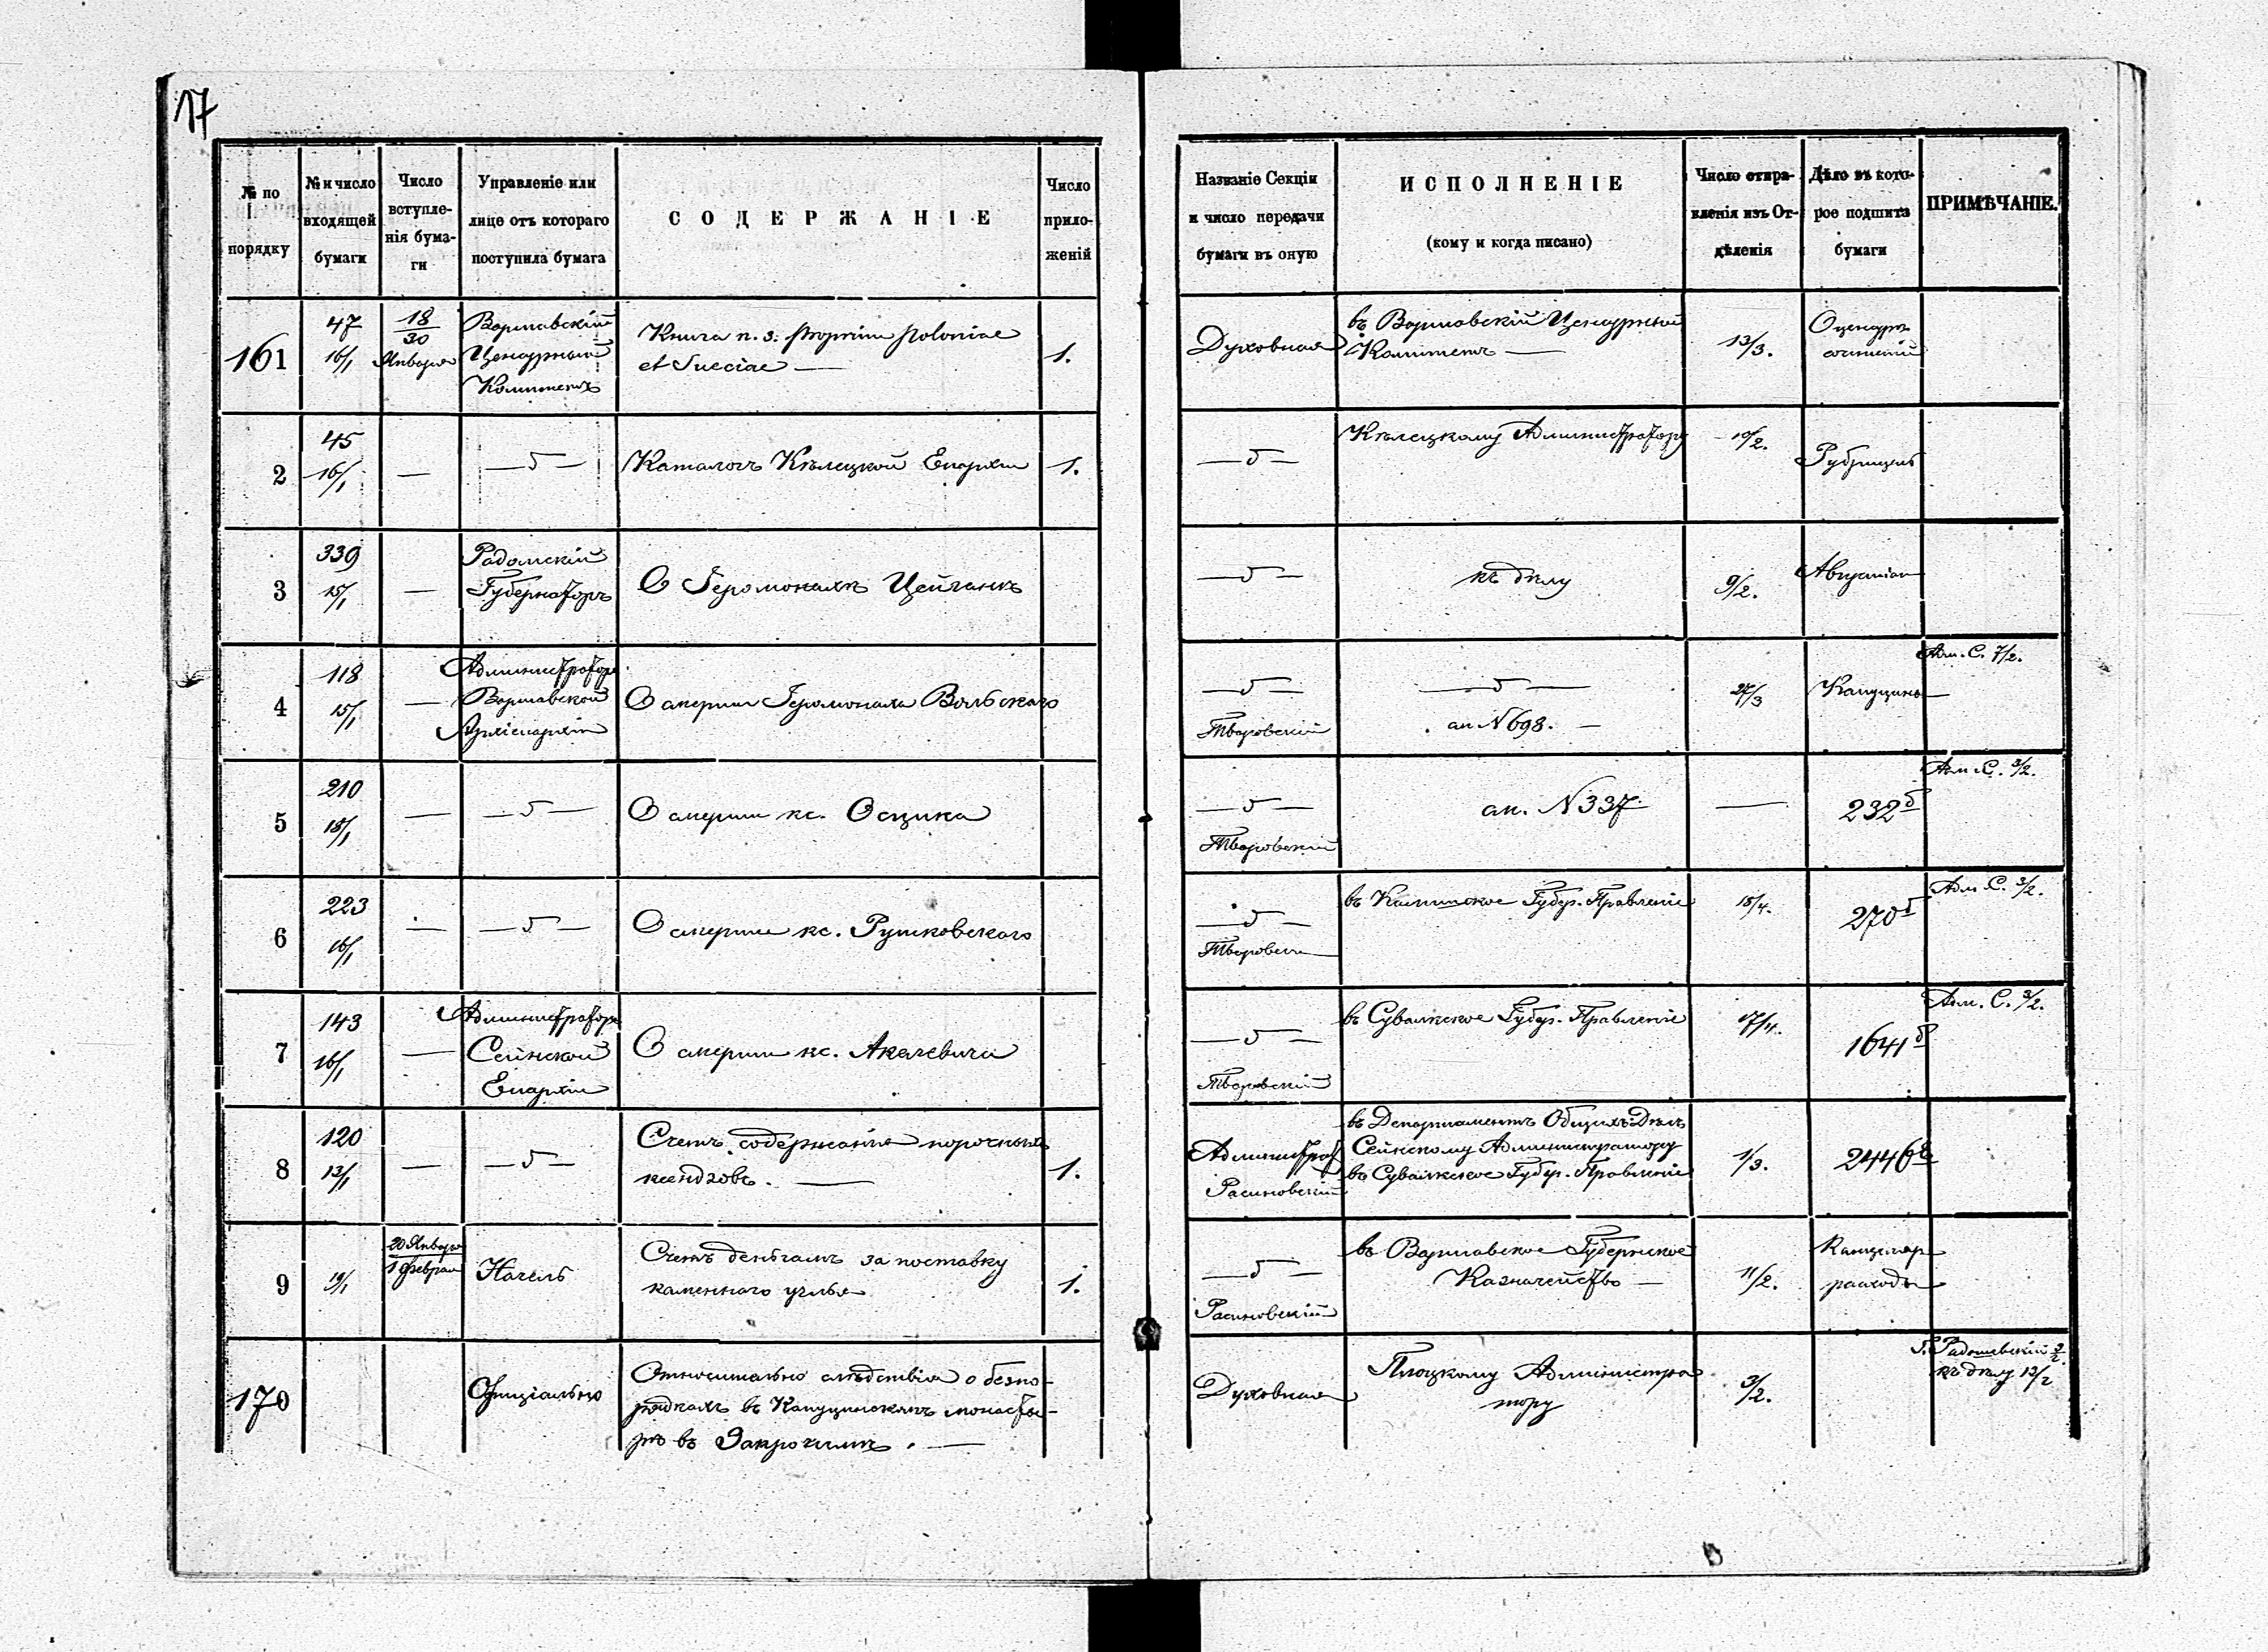 17
№ по порядку
№ и число входящей бумаги
Число вступле-
нія бума-
ги
Управленіе или
лице отъ котораго
поступила бумага
СОДЕРЖАНІЕ
Число
прило-
женій
Названіе Секціи
и число передачи
бумаги въ оную
ИСПОЛНЕНІЕ
(кому и когда писано)
Число отпра-
вленія изъ От-
дѣленія
Дѣло въ кото-
рое подшита
бумаги
ПРИМѢЧАНІЕ.
161
47
16/1
18
30
Января
Варшавскій
Цензурный
Комитетъ
Книга п. з:
Poloniae
et Sueciae —
1.
Духовная
въ Варшавскій Цензурный
Комитетъ —
13/3.
2
45
16/1
—
—5—
Каталогъ Кѣлецкой Епархіи
1.
—5—
Кѣлецкому Администратору
10/2.
Рубрицель
3
339
15/1
—
Радомскій
Губернаторъ
О Іеромонахѣ
—5—
къ дѣлу
9/2.
4
118
15/1
—
Администраторъ
Варшавской
Архіепархіи
О смерти Іеромонаха Вольскаго
—5—
Творовскій
—5—
ап N 698. —
27/3
Капуцины
Адм. С. 7/2.
5
210
18/1
—
—5—
О смерти кс. Осцика
—5—
Творовскій
ап. N 337.
—
232б
Адм. С. 3/2.
6
223
16/1
—
—5—
О смерти кс. Рутковскаго
—5—
въ Калишское Губер. Правленіе
18/4.
270б
Адм. С. 3/2.
7
143
16/1
—
Администраторъ
Сейнской
Епархіи
О смерти кс. Акелевича
—5—
Творовскій
въ Сувалкское Губер. Правленіе
17/4.
1641б
Адм. С. 3/2.
8
120
13/1
—
—5—
Счетъ содержанія порочныхъ
ксендзовъ. —
1.
Администрат
Расиновскій
въ Департаментъ Общихъ Дѣлъ
Сейнскому Администратору
въ Сувалкское Губер. Правленіе
1/3.
2446
9
19/1
20 Января
1 Феврал
Нагель
Счетъ деньгамъ за поставку
каменнаго уголья
1.
—5—
Расиновскій
въ Варшавское Губернское
Казначейство —
11/2.
Канцеляр
расходы
170
Офиціально
Относительно слѣдствія о безпо-
рядкахъ въ Капуцинскомъ монасты-
рѣ въ Закрочимѣ. —
Духовная
Плоцкому Администра
тору
3/2.
къ дѣлу 12/2